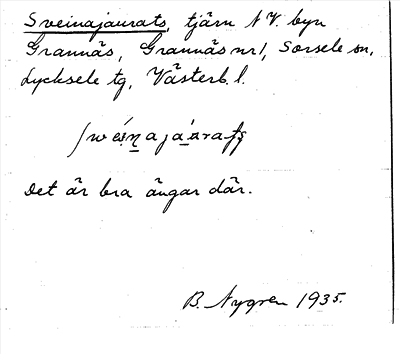 Sveinajaurats, tjärn N.V. byn
Grannäs, Grannäs nr 1, Sorsele sn,
Lycksele tg, Västerb. l.
Det är bra ängar där.
B. Nygren 1935.